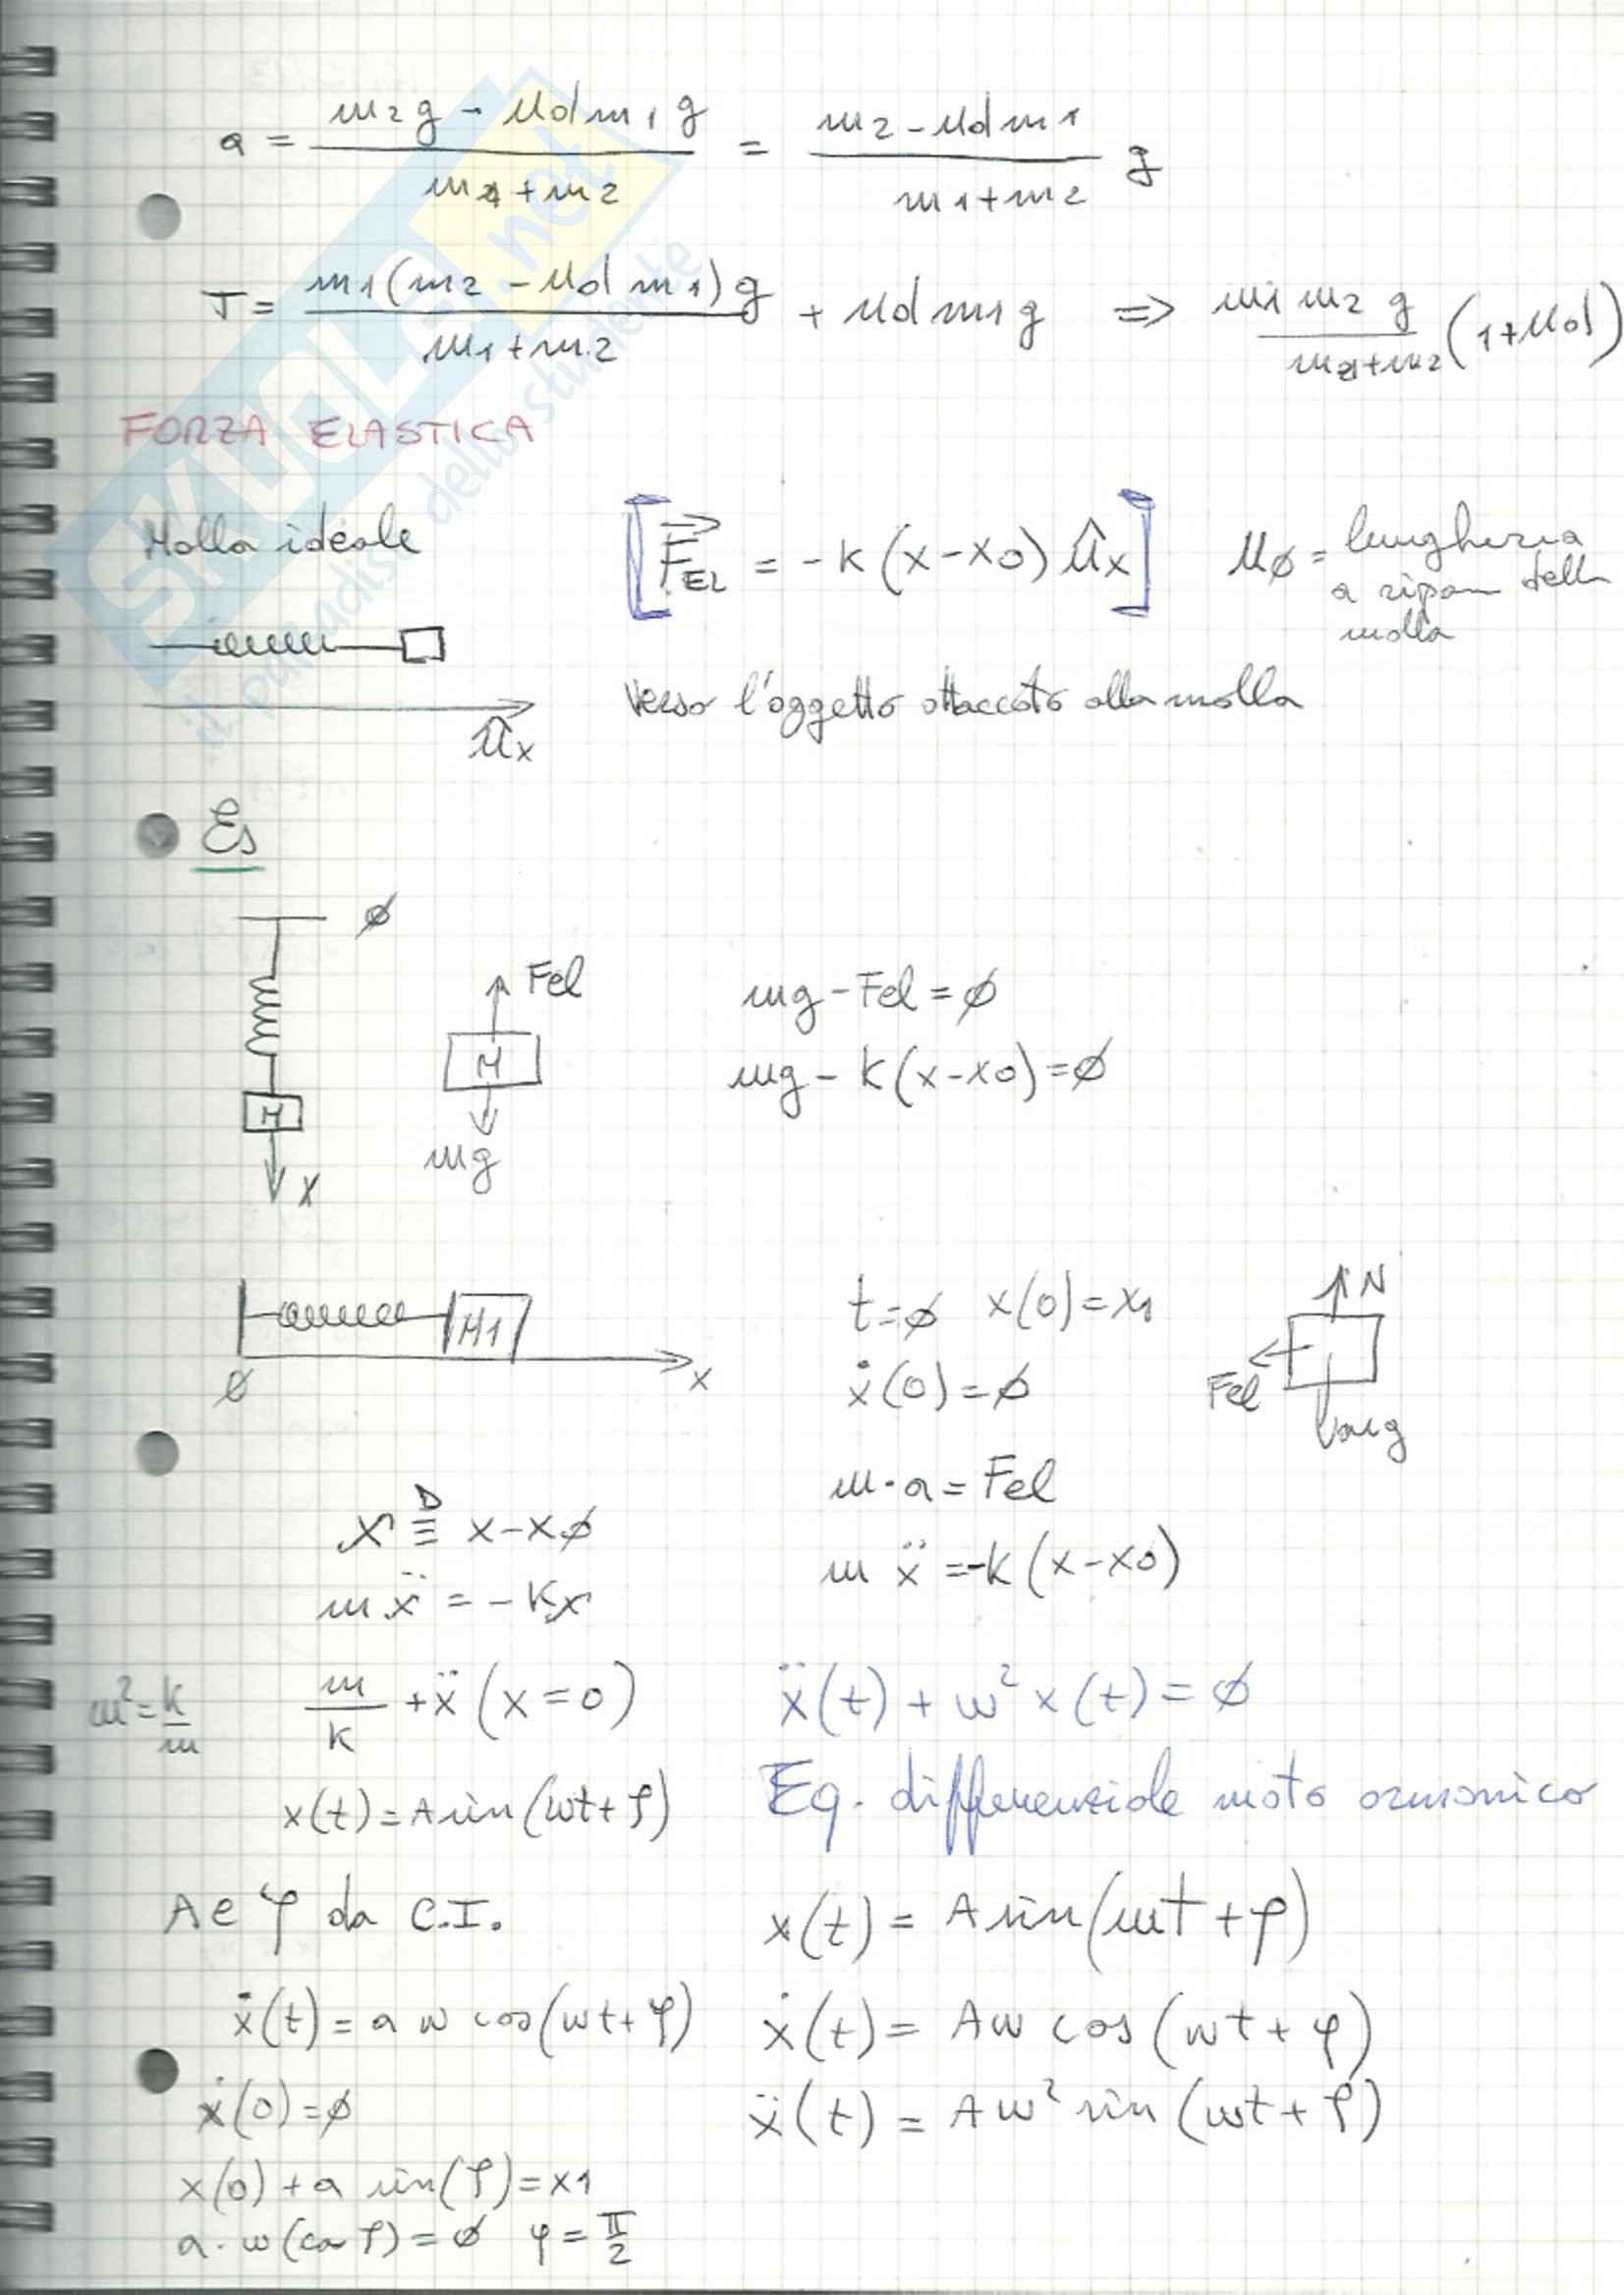 a = m2g - μd m1 g / m1+m2 = m2 - μd m1 / m1+m2 g
T = m1(m2 - μd m1)g / m1+m2 + μd m1 g ⇒ m1 m2 g / m1+m2 (1+μd)
FORZA ELASTICA
Molla ideale
[F⃗EL = -k(x-x0) ûx] μø = lunghezza
a ripom della
molla
ûx
verso l'oggetto attaccato alla molla
Es
ø
Fel
M
mg
M
x
mg - Fel = ø
mg - k(x-x0) = ø
M1
ø
x
t=ø x(0)=x1
ẋ(0)=ø
N
Fel
mg
m·a = Fel
m ẍ = -k(x-x0)
x ≡ᴰ x-xø
m ẍ = -kx
ω²= k/m
m/k + ẍ (x=0)
ẍ(t) + ω² x(t) = ø
x(t) = A sin(ωt+φ)
Eq. differenziale moto armonico
A e φ da C.I.
x(t) = A sin(ωt+φ)
ẋ(t) = a ω cos(ωt+φ)
ẋ(t) = Aω cos(ωt+φ)
ẋ(0)=ø
ẍ(t) = Aω² sin(ωt+φ)
x(0) + a sin(φ) = x1
a·ω(cos φ) = ø φ = π/2
SKUOLA.net
il paradiso dello studente